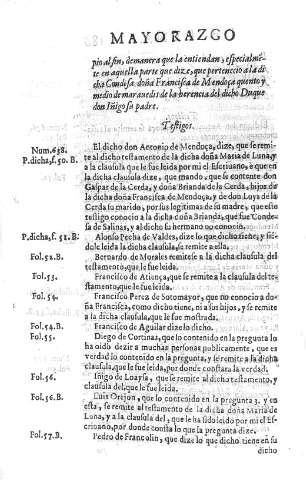 MAYORAZGO
pio al fin, de manera que la entiendan, especialmẽ-
te en aquella parte que dize, que pertenecio a la di-
cha Condesa doña Francisca de Mendoça quento y
medio de marauedis de la herencia del dicho Duque
don Iñigo su padre.
Testigos.
Num.638.
P.dicha,f.50.B.
El dicho don Antonio de Mendoça, dize, que se remi-
te al dicho testamento de la dicha doña Maria de Luna, y
a la clausula que le fue leida por mi el Escriuano, e que en
la dicha clausula dize, que mando, que se contente don
Gaspar de la Cerda, y doña Brianda de la Cerda, hijos de
la dicha doña Francisca de Mendoça, y de don Luys de la
Cerda su marido, por sus legitimas de su madre, que este
testigo conocio a la dicha doña Brianda, que fue Conde-
sa de Salinas, y al dicho su hermano no conocio.
P.dicha,f.51.B.
Alonso Pecha de Valdes, dize lo que dicho tiene, y sié-
dole leida la dicha clausula, se remite a ella.
Fol.52.B.
Bernardo de Morales remitese a la dicha clausula del
testamento, que le fue leida.
Fol.53.
Francisco de Atiença, que se remite a la clausula del tes-
tamento, que le fue leida.
Fol.54.
Francisco Perez de Sotomayor, que no conocio a do-
ña Francisca, como dicho tiene, ni a sus hijos, y se remite
a la dicha clausula, que le fue mostrada.
Fol.54.B.
Francisco de Aguilar dize lo dicho.
Fol.55.
Diego de Cortinas, que lo contenido en la pregunta lo
ha oido dezir a muchas personas publicamente, que es
verdad lo contenido en la pregunta, y se remite a la dicha
clausula, que le fue leida, por donde constara la verdad.
Fol.56.
Iñigo de Loaysa, que se remite al dicho testamento, y
clausula del, que le fue leida.
Fol.56.B.
Luis Orejon, que lo contenido en la pregunta 3. y en
esta, se remite al testamento de la dicha doña Maria de
Luna, y a la clausula del, que le ha sido leido por mi el Es-
criuano, por donde consta lo que la pregunta dize.
Fol.57.B.
Pedro de Francolin, que dize lo que dicho tiene en su
dicho